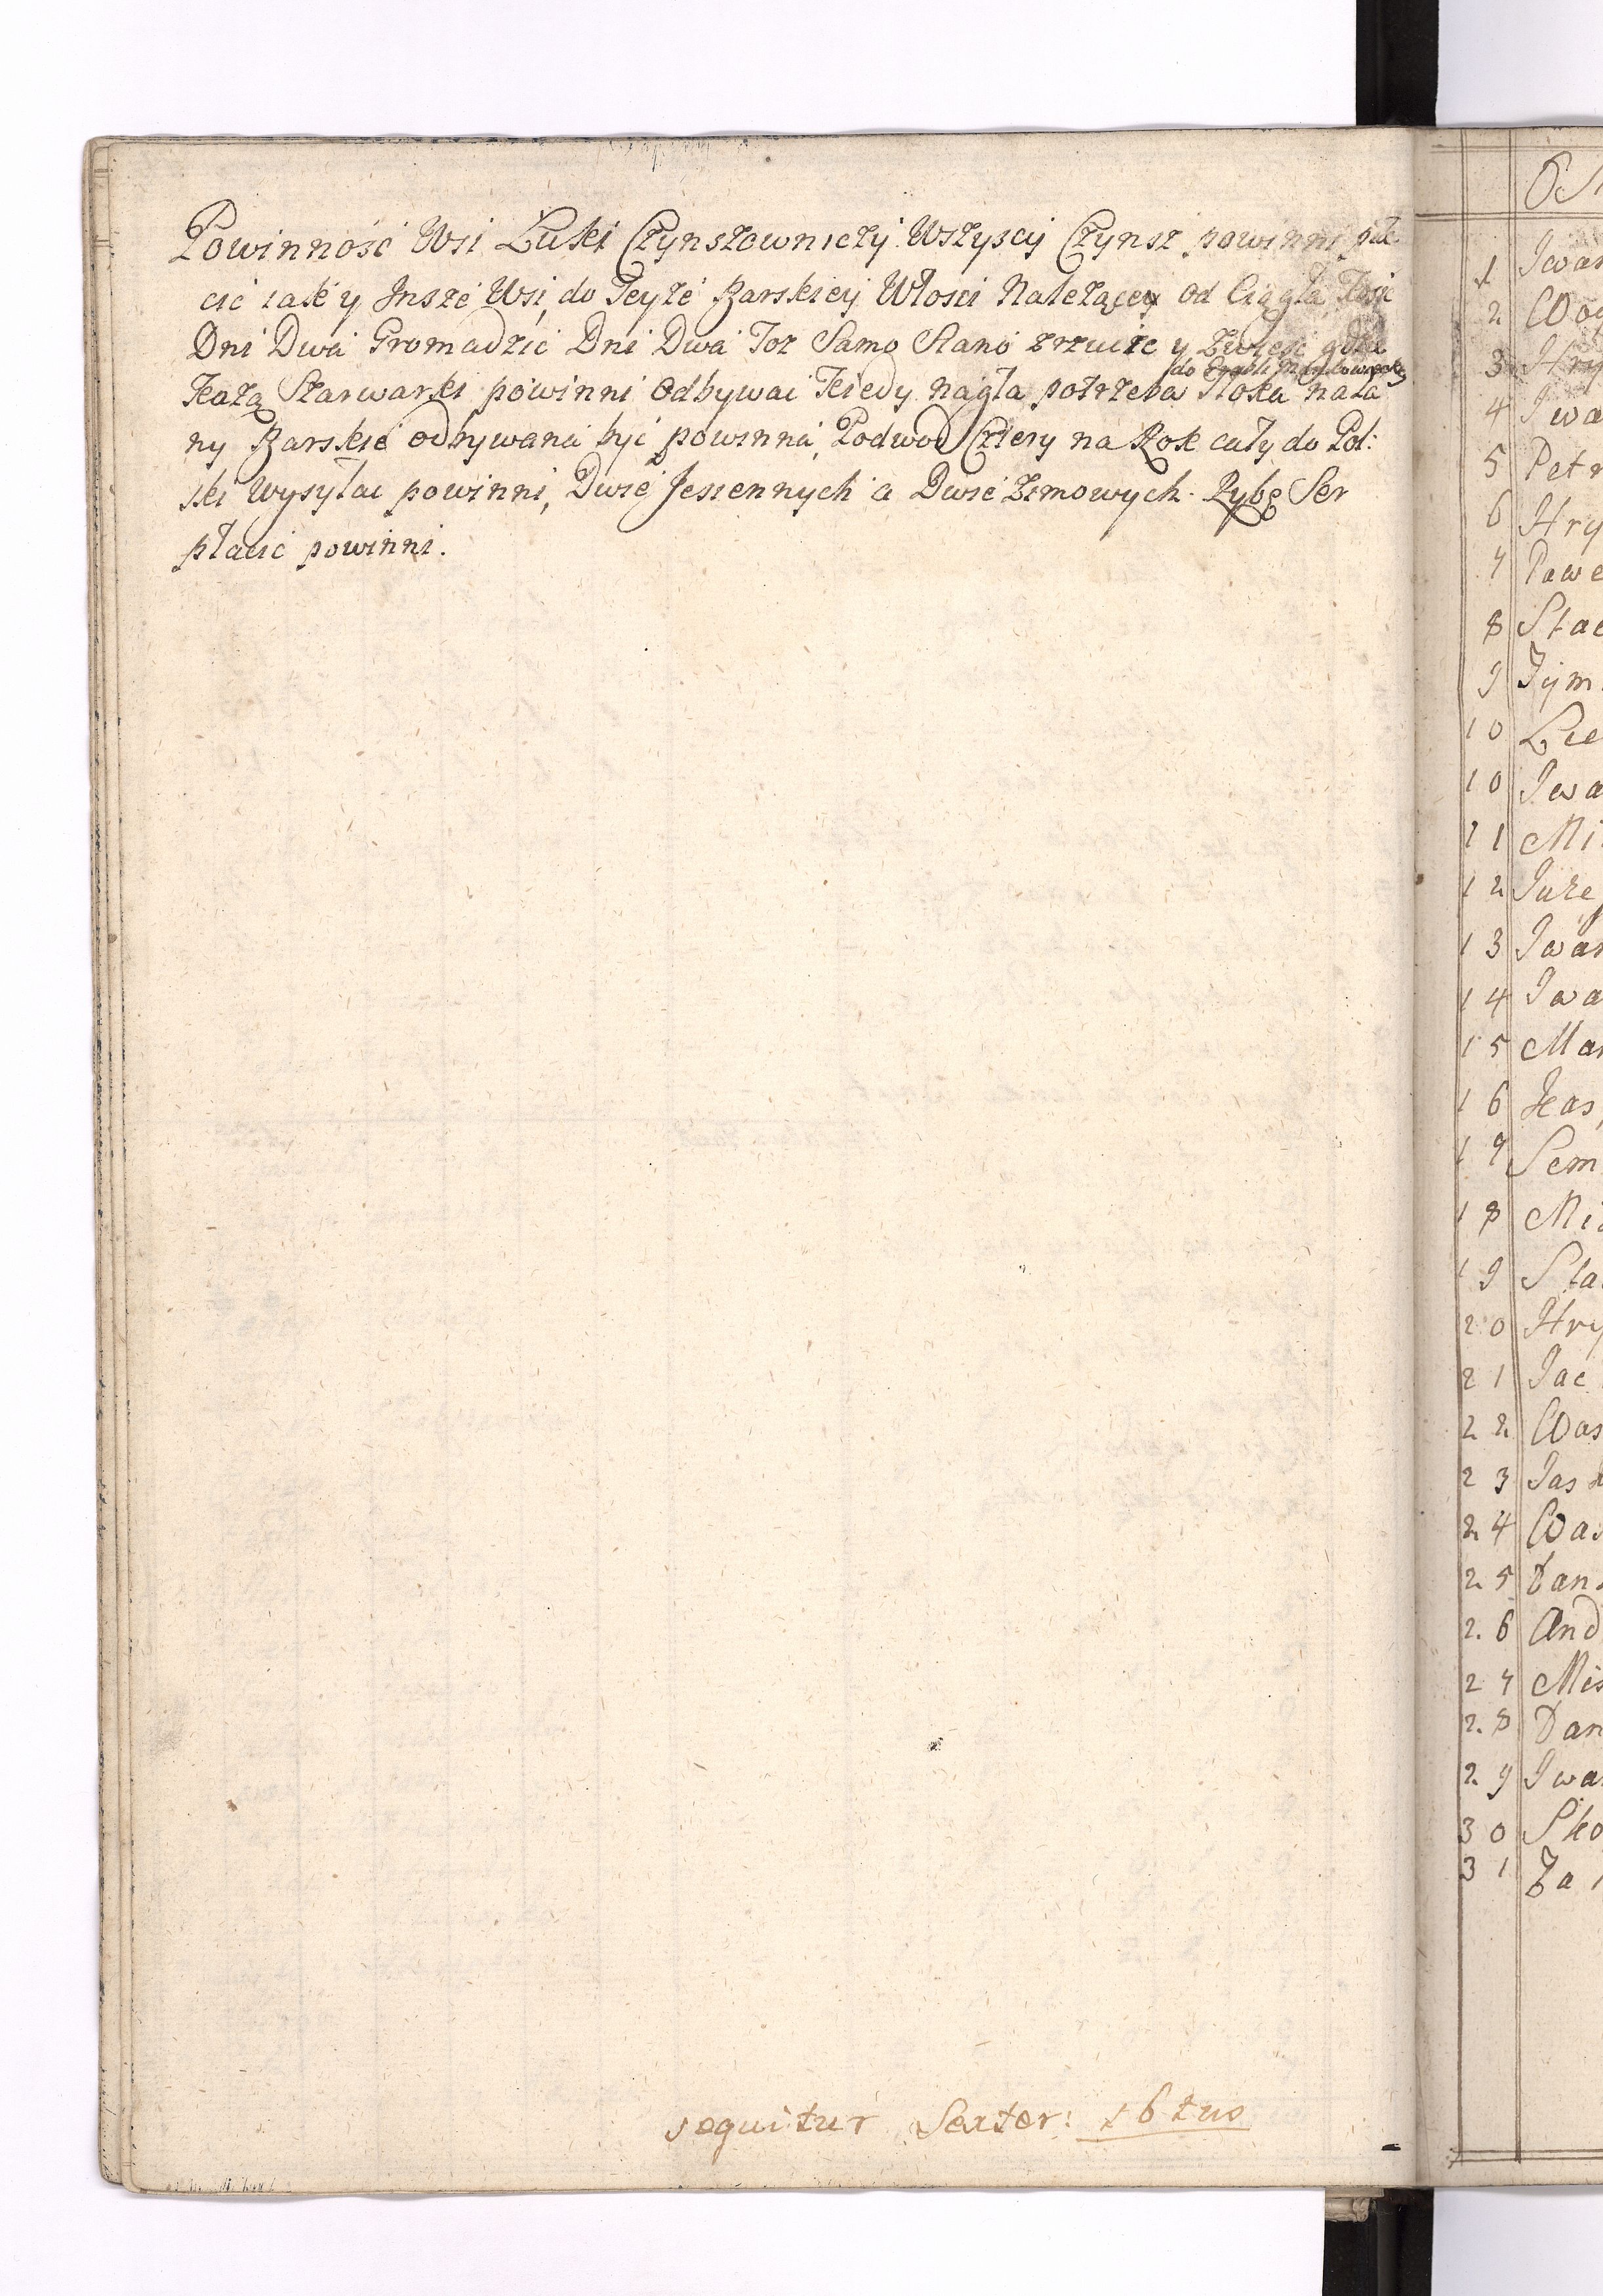 Powinność Wsi Łuki Czynszowniczy. Wszyscy Czynsz powinni pła
cić iak y Insze Wsi, do Teyże Barskiey Włosci Należącey od Ciągła Kosić
Dni Dwa Gromadzić Dni Dwa Toż Samo Siano zrzucic y Zwiesć gdzie
do Grobli
Każą Szarwarki powinni odbywać Kiedy nagla potrzeba Tłoka na Ła
ny Barskie odbywana być powinna, Podwod Cztery na Rok cały do Pol:
ski Wysyłac powinni, Dwie Jesiennych a Dwie Zimowych. Rybę Ser
płacic powinni.
sequitur Sexter: 16tus
1 Iwan
2 Woy
3 Hry
4 Iwa
5 Petr
6 Hry
7 Pawe
8 Stac
9 Tym
10 Le
10 Iwa
11 Mi
12 Jure
13 Iwan
14 Iwa
15 Mar
16 Kas
17 Sem
18 Mi
19 Sta
20 Hry
21 Jac
22 Was
23 Jas
24 Was
25 Dan
26 And
27 Mis
28 Dan
29 Iwa
30 Sko
31 Za